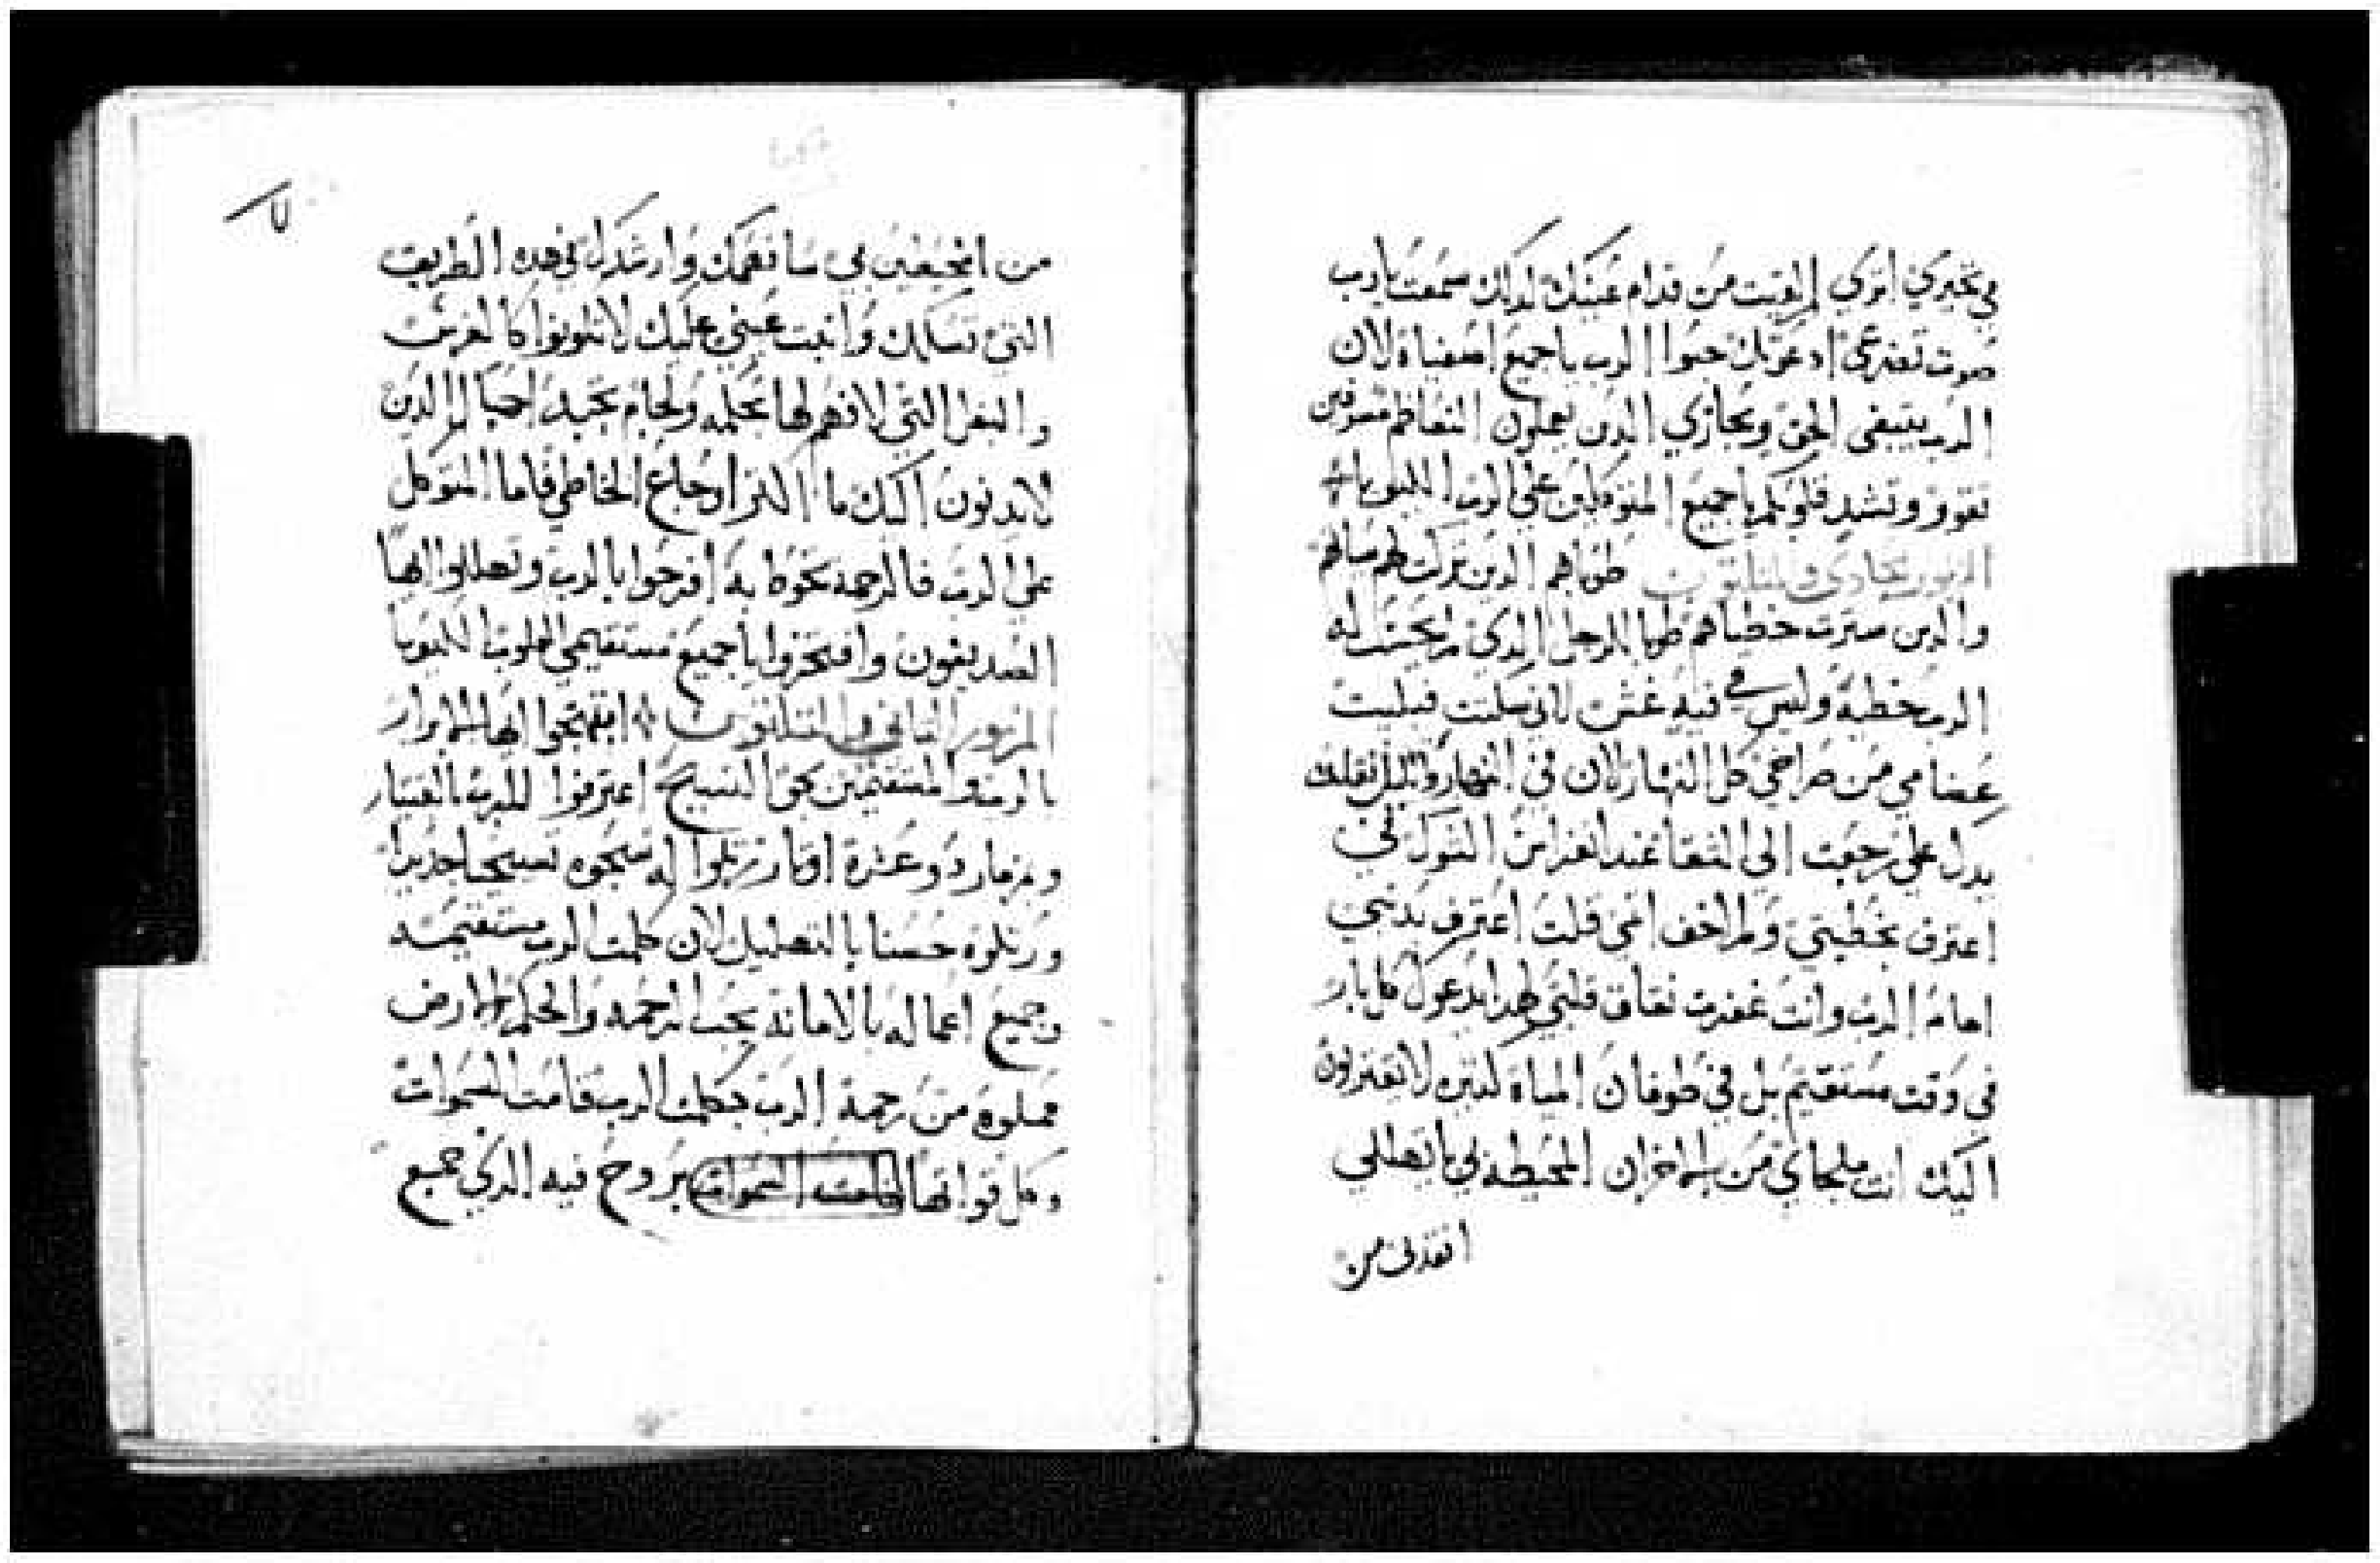 في تحيري اتري القيت من قدام عينيك لدلك سمعت يارب
صوت تضرعي اد دعوتك حبوا الرب يا جميع اصفياه لان
الرب يبتغي الحق ويجازي الدين يعملون
تقوو وتشد قلوبكم يا جميع المتوكلين علي الرب الليلويا
المزمور الحادي والتلتون طوباهم الدين تركت لهم
والدين سترت خطياهم طوبا للرجل الدي لم يحسب له
الرب خطية وليس في فيه غش لاني سكتت فبليت
عضامي من صراخي كل النهار لان في النهار والليل تقلت
يدك علي رجعت الي الشقا عند انغراس الشوك في
اعترف بخطيتي ولم اخف اتمي قلت اعترف بدنبي
امام الرب وانت غفرت نفاق قلبي لهدا يدعوك كل بار
في وقت مستقيم بل في طوفان المياه كتيره لا يقتربون
اليك انت ملجاي من الاحزان المحيطه بي يا تهللي
انقدني من
لا
من المحيطين بي سافهمك وارشدك في هده الطريق
التي تسلك واتبت عيني عليك لا تكونوا كالفرس
والبغل التي لا فهم لها بكلمه ولجام تجبد احناك الدين
لا يدنون اليك ما اكتر اوجاع الخاطي فاما المتوكل
علي الرب فالرحمه تحوط به افرحوا بالرب وتهللوا ايها
الصديقون وافتخروا يا جميع مستقيمي القلوب الليلويا
المزمور التاني والتلتون ابتهجوا ايها الابرار
بالرب والمستقيمين بحق التسبيح اعترفوا للرب بالقيتار
وبمزمار دو عشرة اوتار رتلوا له سبحوه تسبيحا جديدا
ورتلوه حسنا بالتهليل لان كلمت الرب مستقيمه
وجميع اعماله بالامانه يحب الرحمه والحكم الارض
مملوه من رحمة الرب بكلمت الرب قامت السموات
وكل قواتها قامت السموات بروح فيه الدي جمع